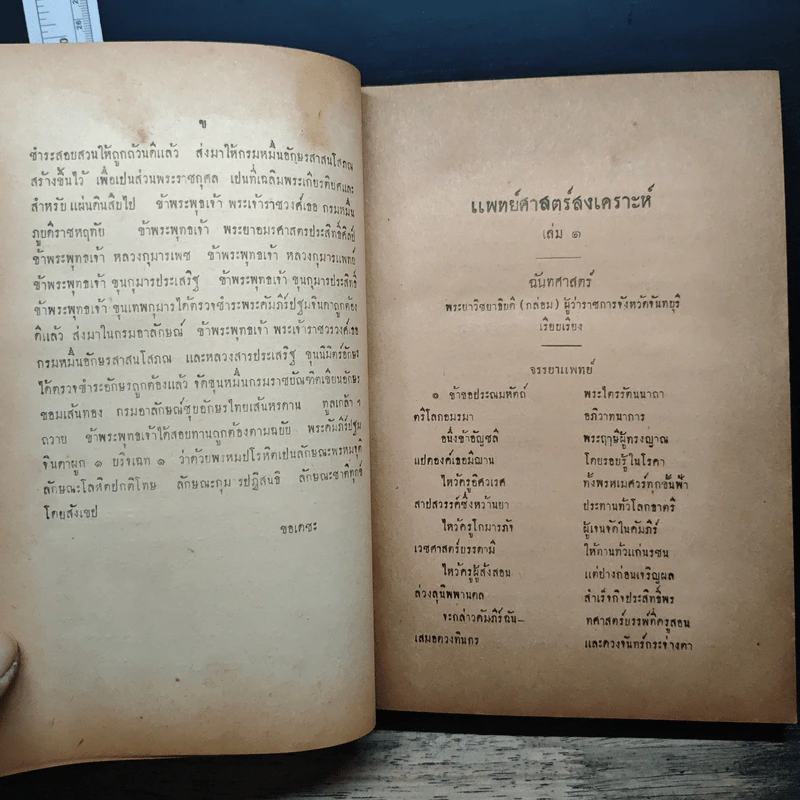 ข
ชำระสอบสวนให้ถูกถ้วนดีแล้ว ส่งมาให้กรมหมื่นอักษรสาสนโสภณ
สร้างขึ้นไว้ เพื่อเปนส่วนพระราชกุศล เปนที่เฉลิมพระเกียรติยศและ
สำหรับแผ่นดินสืบไป ข้าพระพุทธเจ้า พระเจ้าราชวงศ์เธอ กรมหมื่น
ภูบดีราชหฤทัย ข้าพระพุทธเจ้า พระยาอมรศาสตรประสิทธิ์ศิลป์
ข้าพระพุทธเจ้า หลวงกุมารเพช ข้าพระพุทธเจ้า หลวงกุมารแพทย์
ข้าพระพุทธเจ้า ขุนกุมารประเสริฐ ข้าพระพุทธเจ้า ขุนกุมารประสิทธิ์
ข้าพระพุทธเจ้า ขุนเทพกุมารได้ตรวจชำระพระคัมภีร์ปฐมจินดาถูกต้อง
ดีแล้ว ส่งมาในกรมอาลักษณ์ ข้าพระพุทธเจ้า พระเจ้าราชวรวงศ์เธอ
กรมหมื่นอักษรสาสนโสภณ และหลวงสารประเสริฐ ขุนนิมิตร์อักษร
ได้ตรวจชำระอักษรถูกต้องแล้ว จัดขุนหมื่นกรมราชบัณฑิตเขียนอักษร
ขอมเส้นทอง กรมอาลักษณ์ชุบอักษรไทยเส้นหรดาน ทูลเกล้า ฯ
ถวาย ข้าพระพุทธเจ้าได้สอบทานถูกต้องตามฉบับ พระคัมภีร์ปฐม
จินดาผูก ๑ บริจเฉท ๑ ว่าด้วยพรหมปโรหิตเปนลักษณะพรหมจุติ
ลักษณะโลหิตปกติโทษ ลักษณะกุมารปฏิสนธิ ลักษณะชาติทุกข์
โดยสังเขป
ขอเดชะ
แพทย์ศาสตร์สงเคราะห์
เล่ม ๑
ฉันทศาสตร์
พระยาวิชยาธิบดี (กล่อม) ผู้ว่าราชการจังหวัดจันทบุรี
เรียบเรียง
จรรยาแพทย์
๑ ข้าขอประณมหัตถ์ พระไตรรัตนนาถา
ตรีโลกอมรมา อภิวาทนาการ
อนึ่งข้าอัญชลี พระฤาษีผู้ทรงญาณ
แปดองค์เธอมีฌาน โดยรอบรู้ในโรคา
ไหว้คุรูอิศวเรศ ทั้งพรหมเมศวร์ทุกชั้นฟ้า
สาปสวรรค์ซึ่งหว้านยา ประทานทั่วโลกธาตรี
ไหว้ครูโกมารภัจ ผู้เจนจัดในคัมภีร์
เวชศาสตร์บรรดามี ให้ทานทั่วแก่นรชน
ไหว้ครูผู้สั่งสอน แต่ปางก่อนเจริญผล
ล่วงลุนิพพานดล สำเร็จกิจประสิทธิ์พร
จะกล่าวคัมภีร์ฉัน- ทศาสตร์บรรพ์ที่ครูสอน
เสมอดวงทินกร และดวงจันทร์กระจ่างตา